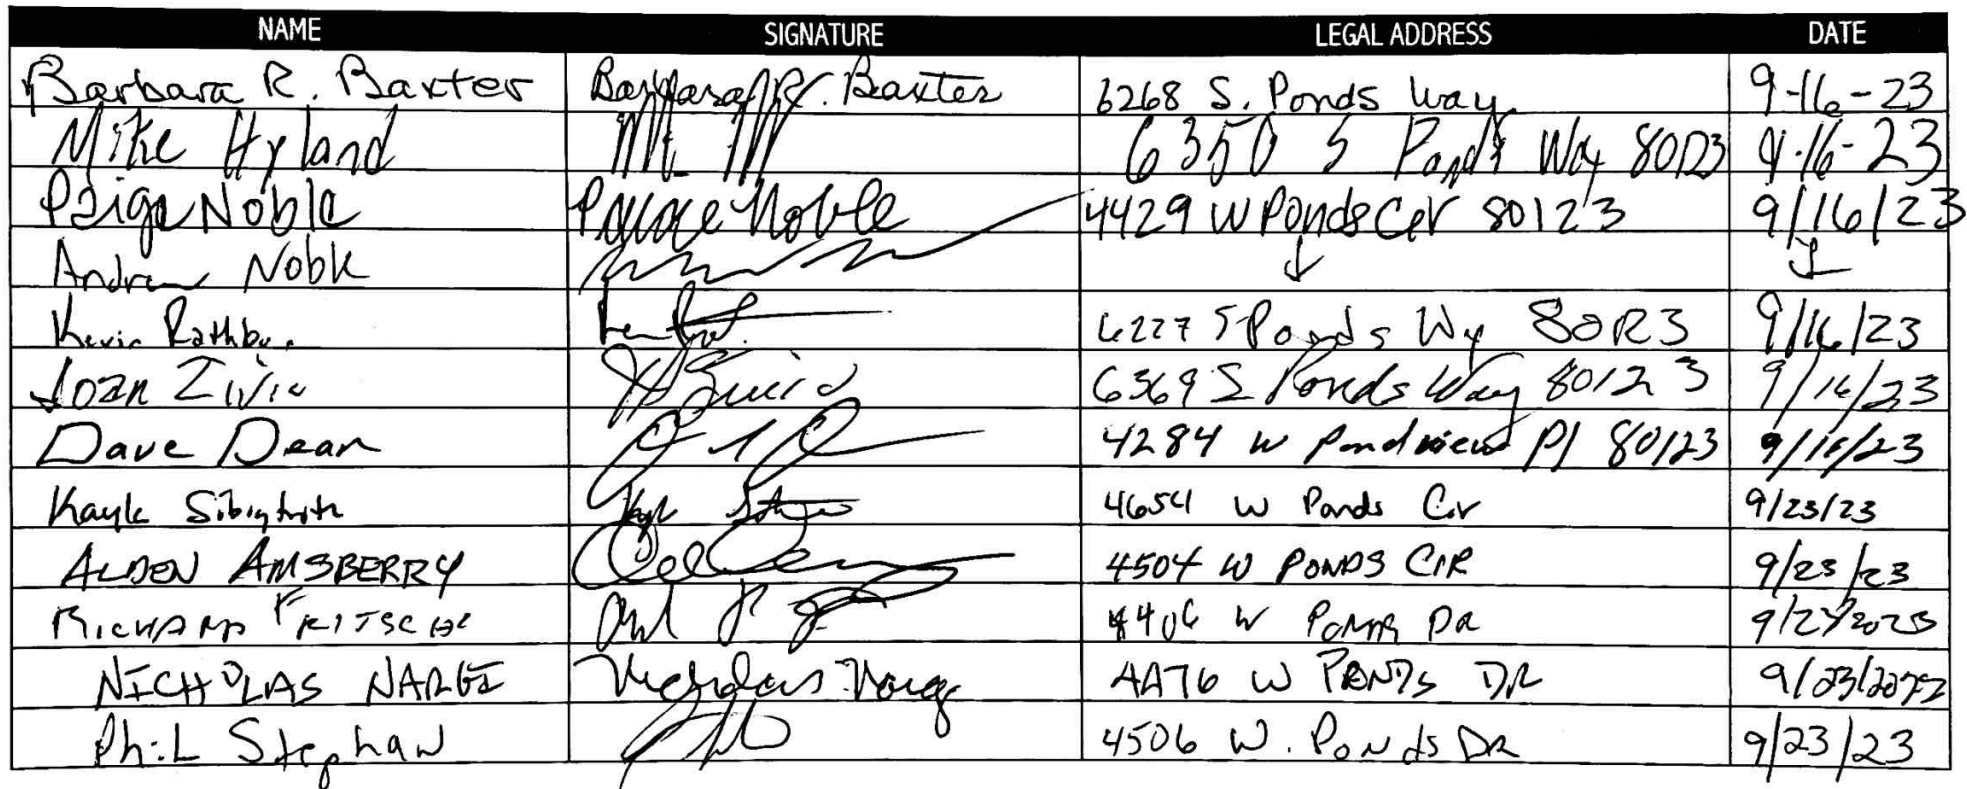 NAME SIGNATURE LEGAL ADDRESS DATE
Barbara R. Baxter Barbara R. Baxter 6268 S. Ponds Way 9-16-23
Mike Hyland 6350 S Ponds Way 80123 9-16-23
Paige Noble Paige Noble 4429 W Ponds Cir 80123 9/16/23
Andrew Noble ↓ ↓
Kevin Rathbun 6227 S Ponds Wy 80123 9/16/23
Joan Zivic 6369 S Ponds Way 80123 9/16/23
Dave Dean 4284 W Pondview Pl 80123 9/16/23
Kayle 4654 W Ponds Cir 9/23/23
ALDEN AMSBERRY 4504 W PONDS CIR 9/23/23
RICHARD FRITSCHE W PONDS DR
NICHOLAS NARGI Nicholas Nargi 4476 W PONDS DR
Phil Stephan 4506 W. Ponds DR 9/23/23